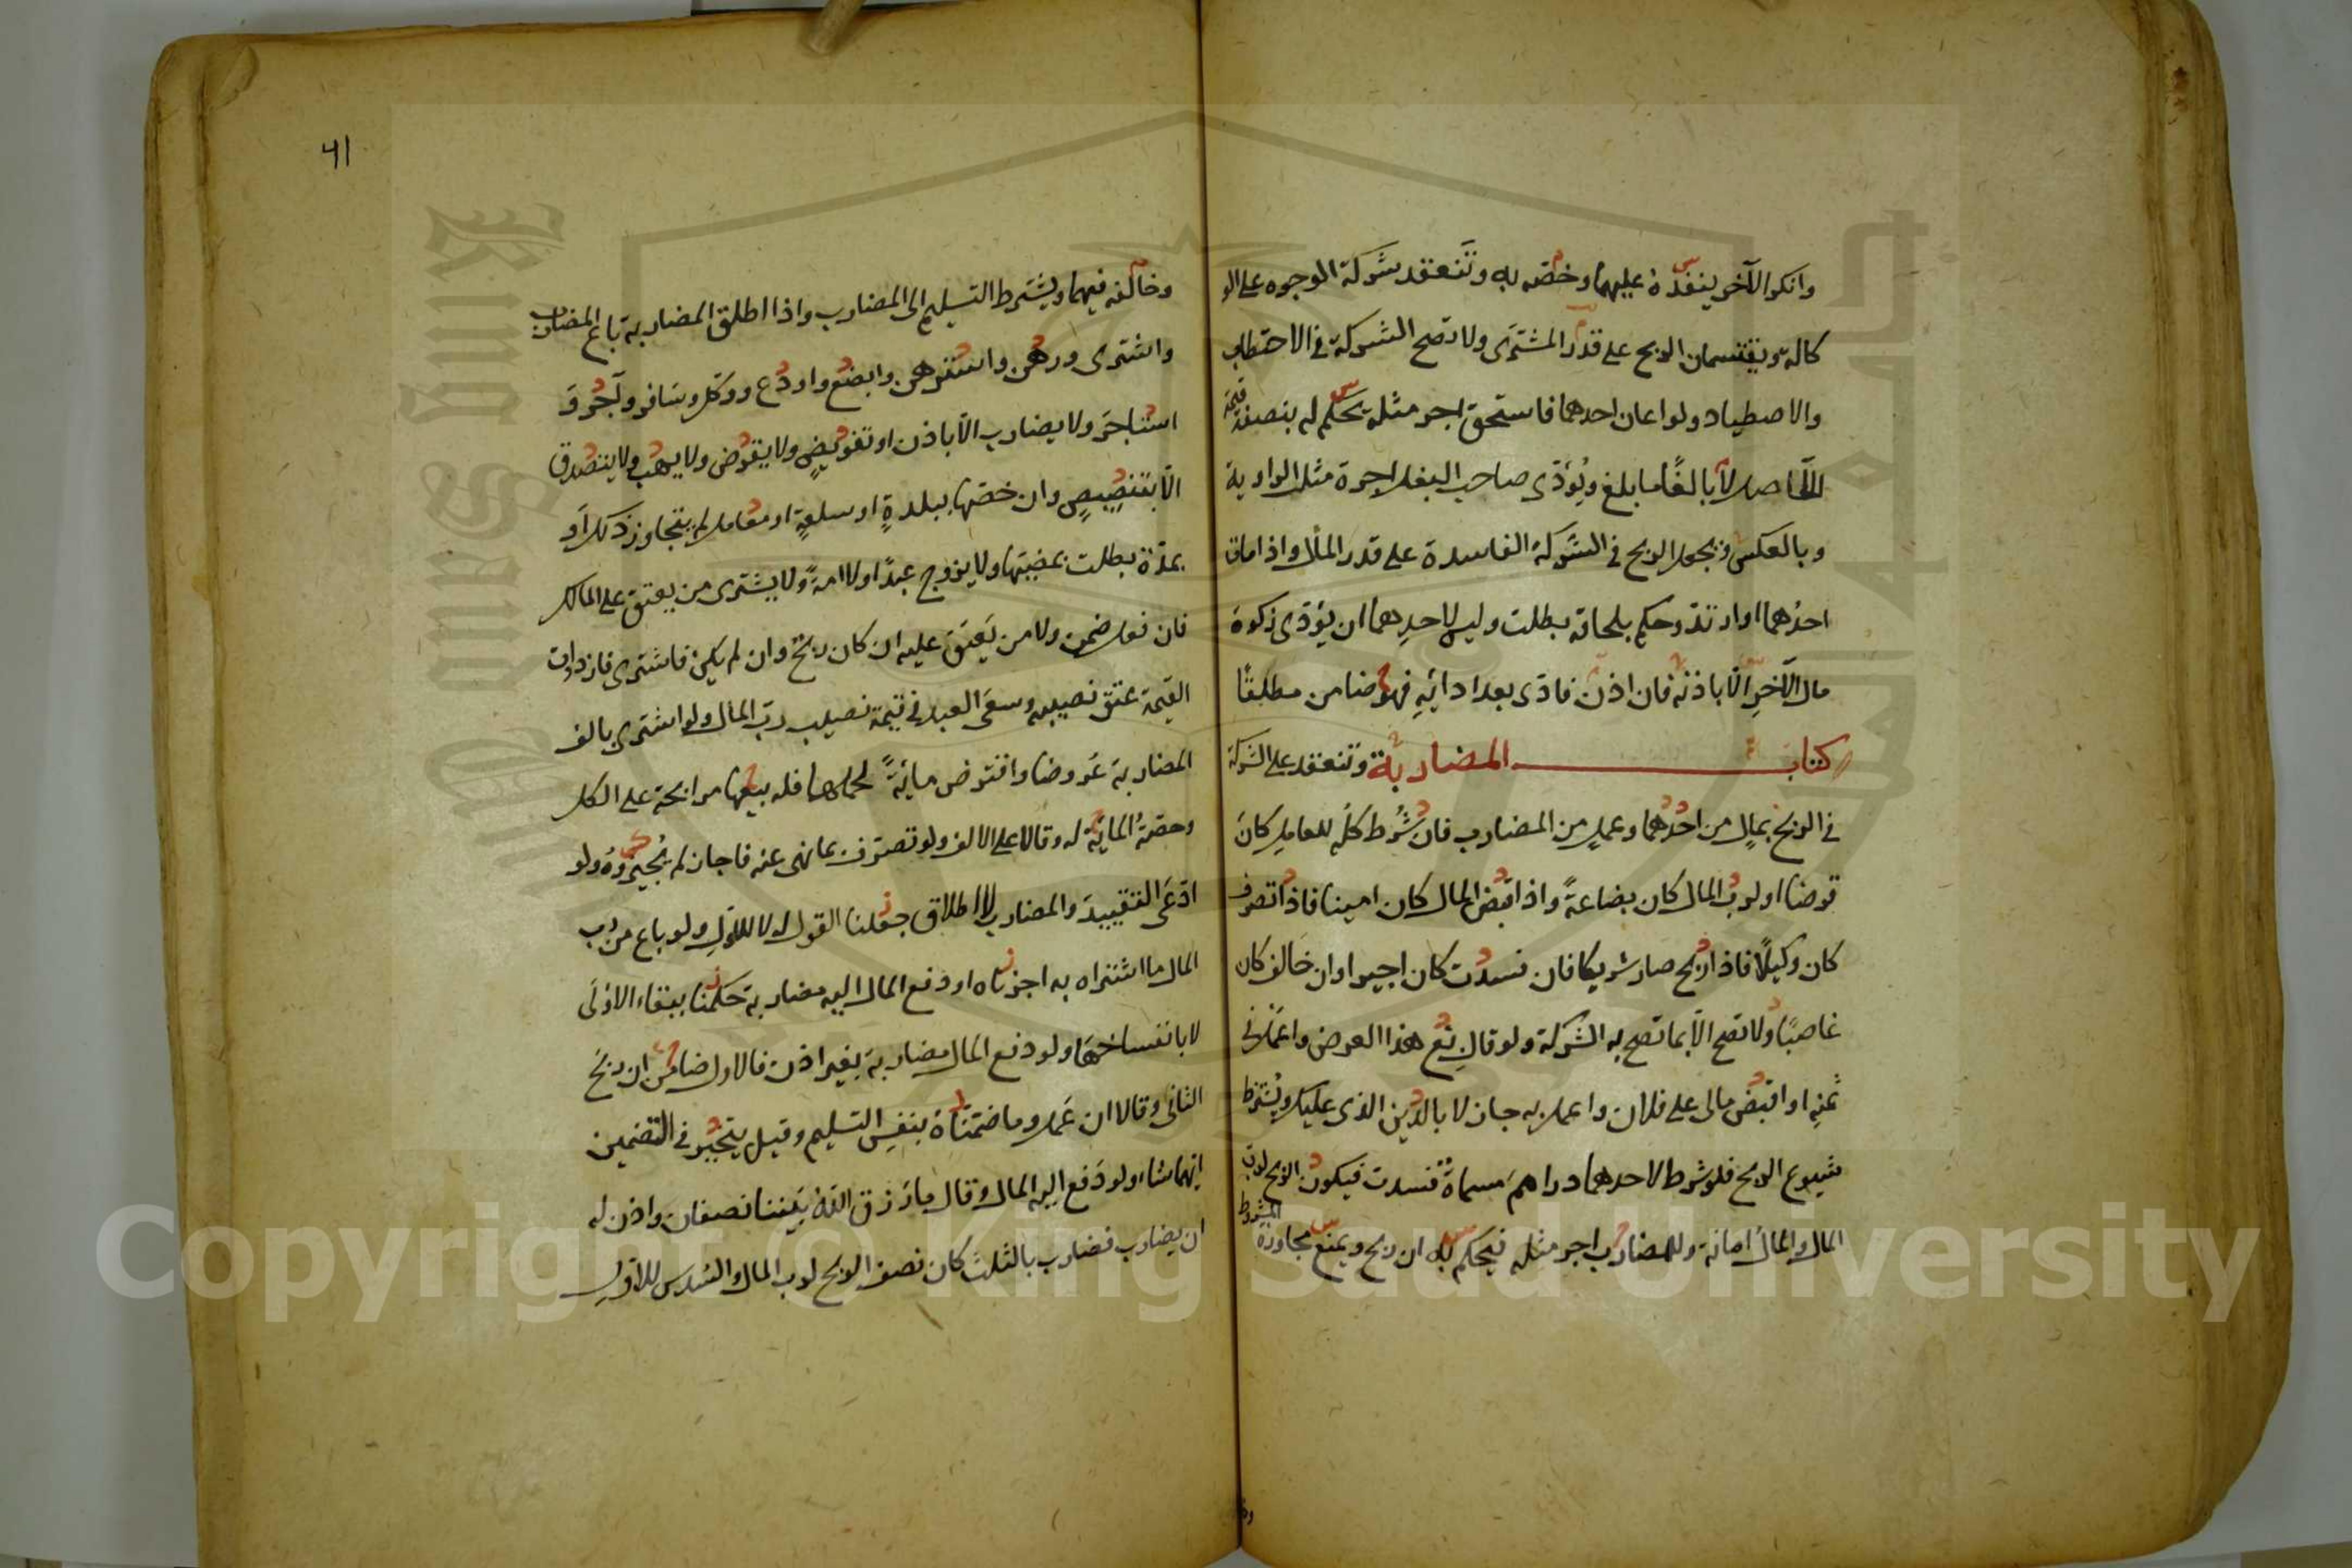 وانكر الآخر ينفذه عليهما وخصه به وتنعقد شركة الوجوه على الو
كالة ويقتسمان الربح على قدر المشترى ولا تصح الشركة في الاحتطاب
والاصطياد ولو اعان احدهما فاستحق اجر مثله يحكم له بنصف قيمة
الحاصل لا بالغًا ما بلغ ويُؤدى صاحب البغل اجرة مثل الراوية
وبالعكس ويجعل الربح في الشركة الفاسدة على قدر المال واذا مات
احدُهما او ارتد وحكم بلحاقه بطلت وليس لاحدِهما ان يؤدى زكوة
مال الآخرِ الّا باذنه فان اذن فادّى بعد ادائِهِ فهو ضامن مطلقًا
كتاب المضاربة وتنعقد على الشركة
في الربح بمالٍ من احدهما وعملٍ من المضارب فان شُرط كلُّه للعاملِ كان
قرضا او لرب المال كان بضاعةً واذا قبض المال كان امينا فاذا تصرف
كان وكيلًا فاذا ربح صار شريكا فان فسدت كان اجيرا وان خالف كان
غاصبًا ولا تصح الّا بما تصح به الشركة ولو قال بع هذا العرض واعمل في
ثمنِهِ او اقبض مالى على فلان واعمل به جاز لا بالدين الذى عليك ويُشترط
شيوع الربح فلو شرط لاحدهما دراهمَ مسماةً فسدت فيكون الربح لرب
المال والمال امانة وللمضارب اجر مثله فيحكم به ان ربح ويمنع مجاوزة المشروط
٤١
وخالفه فيهما ويشترط التسليم الى المضارب واذا اطلق المضاربة باع المضارب
واشترى ورهن واسترهن وابضع واودع ووكل وسافر وآجر و
استاجر ولا يضارب الّا باذن او تفويضٍ ولا يقرض ولا يهب ولا يتصدق
الّا بتنصيصٍ وان خصّها ببلدةٍ او سلعةٍ او معامل لم يتجاوز ذلك او
بمدّة بطلت بمضيّها ولا يزوج عبدًا ولا امةً ولا يشترى من يعتق على المالك
فان فعل ضمن ولا من يَعتق عليه ان كان ربحٌ وان لم يكن فاشترى فازدادت
القيمة عتق نصيبه وسعى العبد في قيمة نصيب ربّ المال ولو اشترى بالف
المضاربة عَروضا واقترض مايةً لحملها فله بيعها مرابحة على الكل
وحصّةُ الماية له وقالا على الالف ولو تصرّف بما نهى عنه فاجاز لم يُجيزوه ولو
ادّعى التقييدَ والمضارب الاطلاق جعلنا القول له لا للاول ولو باع من رب
المال ما اشتراه به اجزناه او دفع المال اليه مضاربة حكمنا ببقاء الاولى
لا بانفساخها ولو دفع المال مضاربة بغير اذن فالاول ضامن ان ربحَ
الثانى وقالا ان عمل وما ضمّناه بنفسِ التسليم وقيل يتخير في التضمين
ايهما شاء ولو دَفع اليه المال وقال ما رَزق اللهُ بَيننا نصفان واذن له
ان يضارب فضارب بالثلث كان نصف الربح لرب المال والسّدس للاولِ
Copyright © King Saud University
King Saud University